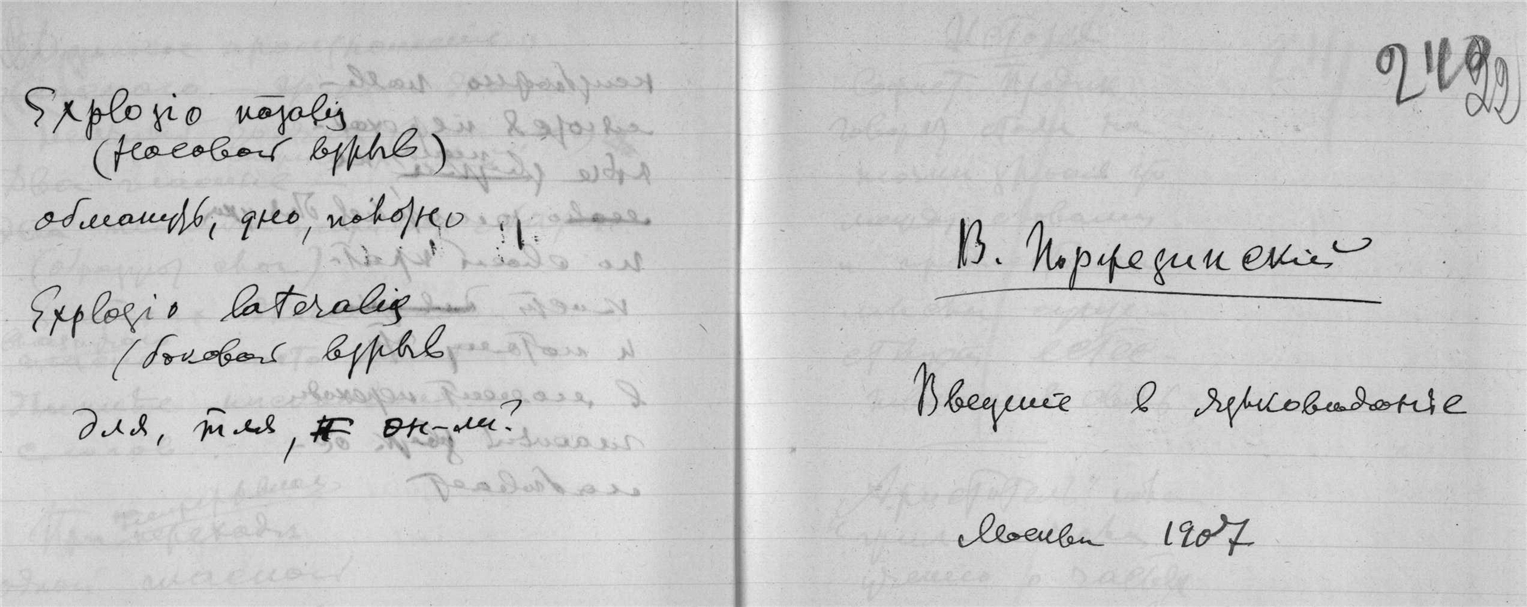 Explosio nasalis
(носовой взрыв)
обмануть, дно,
Explosio lateralis
(боковой взрыв
для, тля, он-ли?
22
В. Поржезинский
Введение в языковедение
Москва 1907